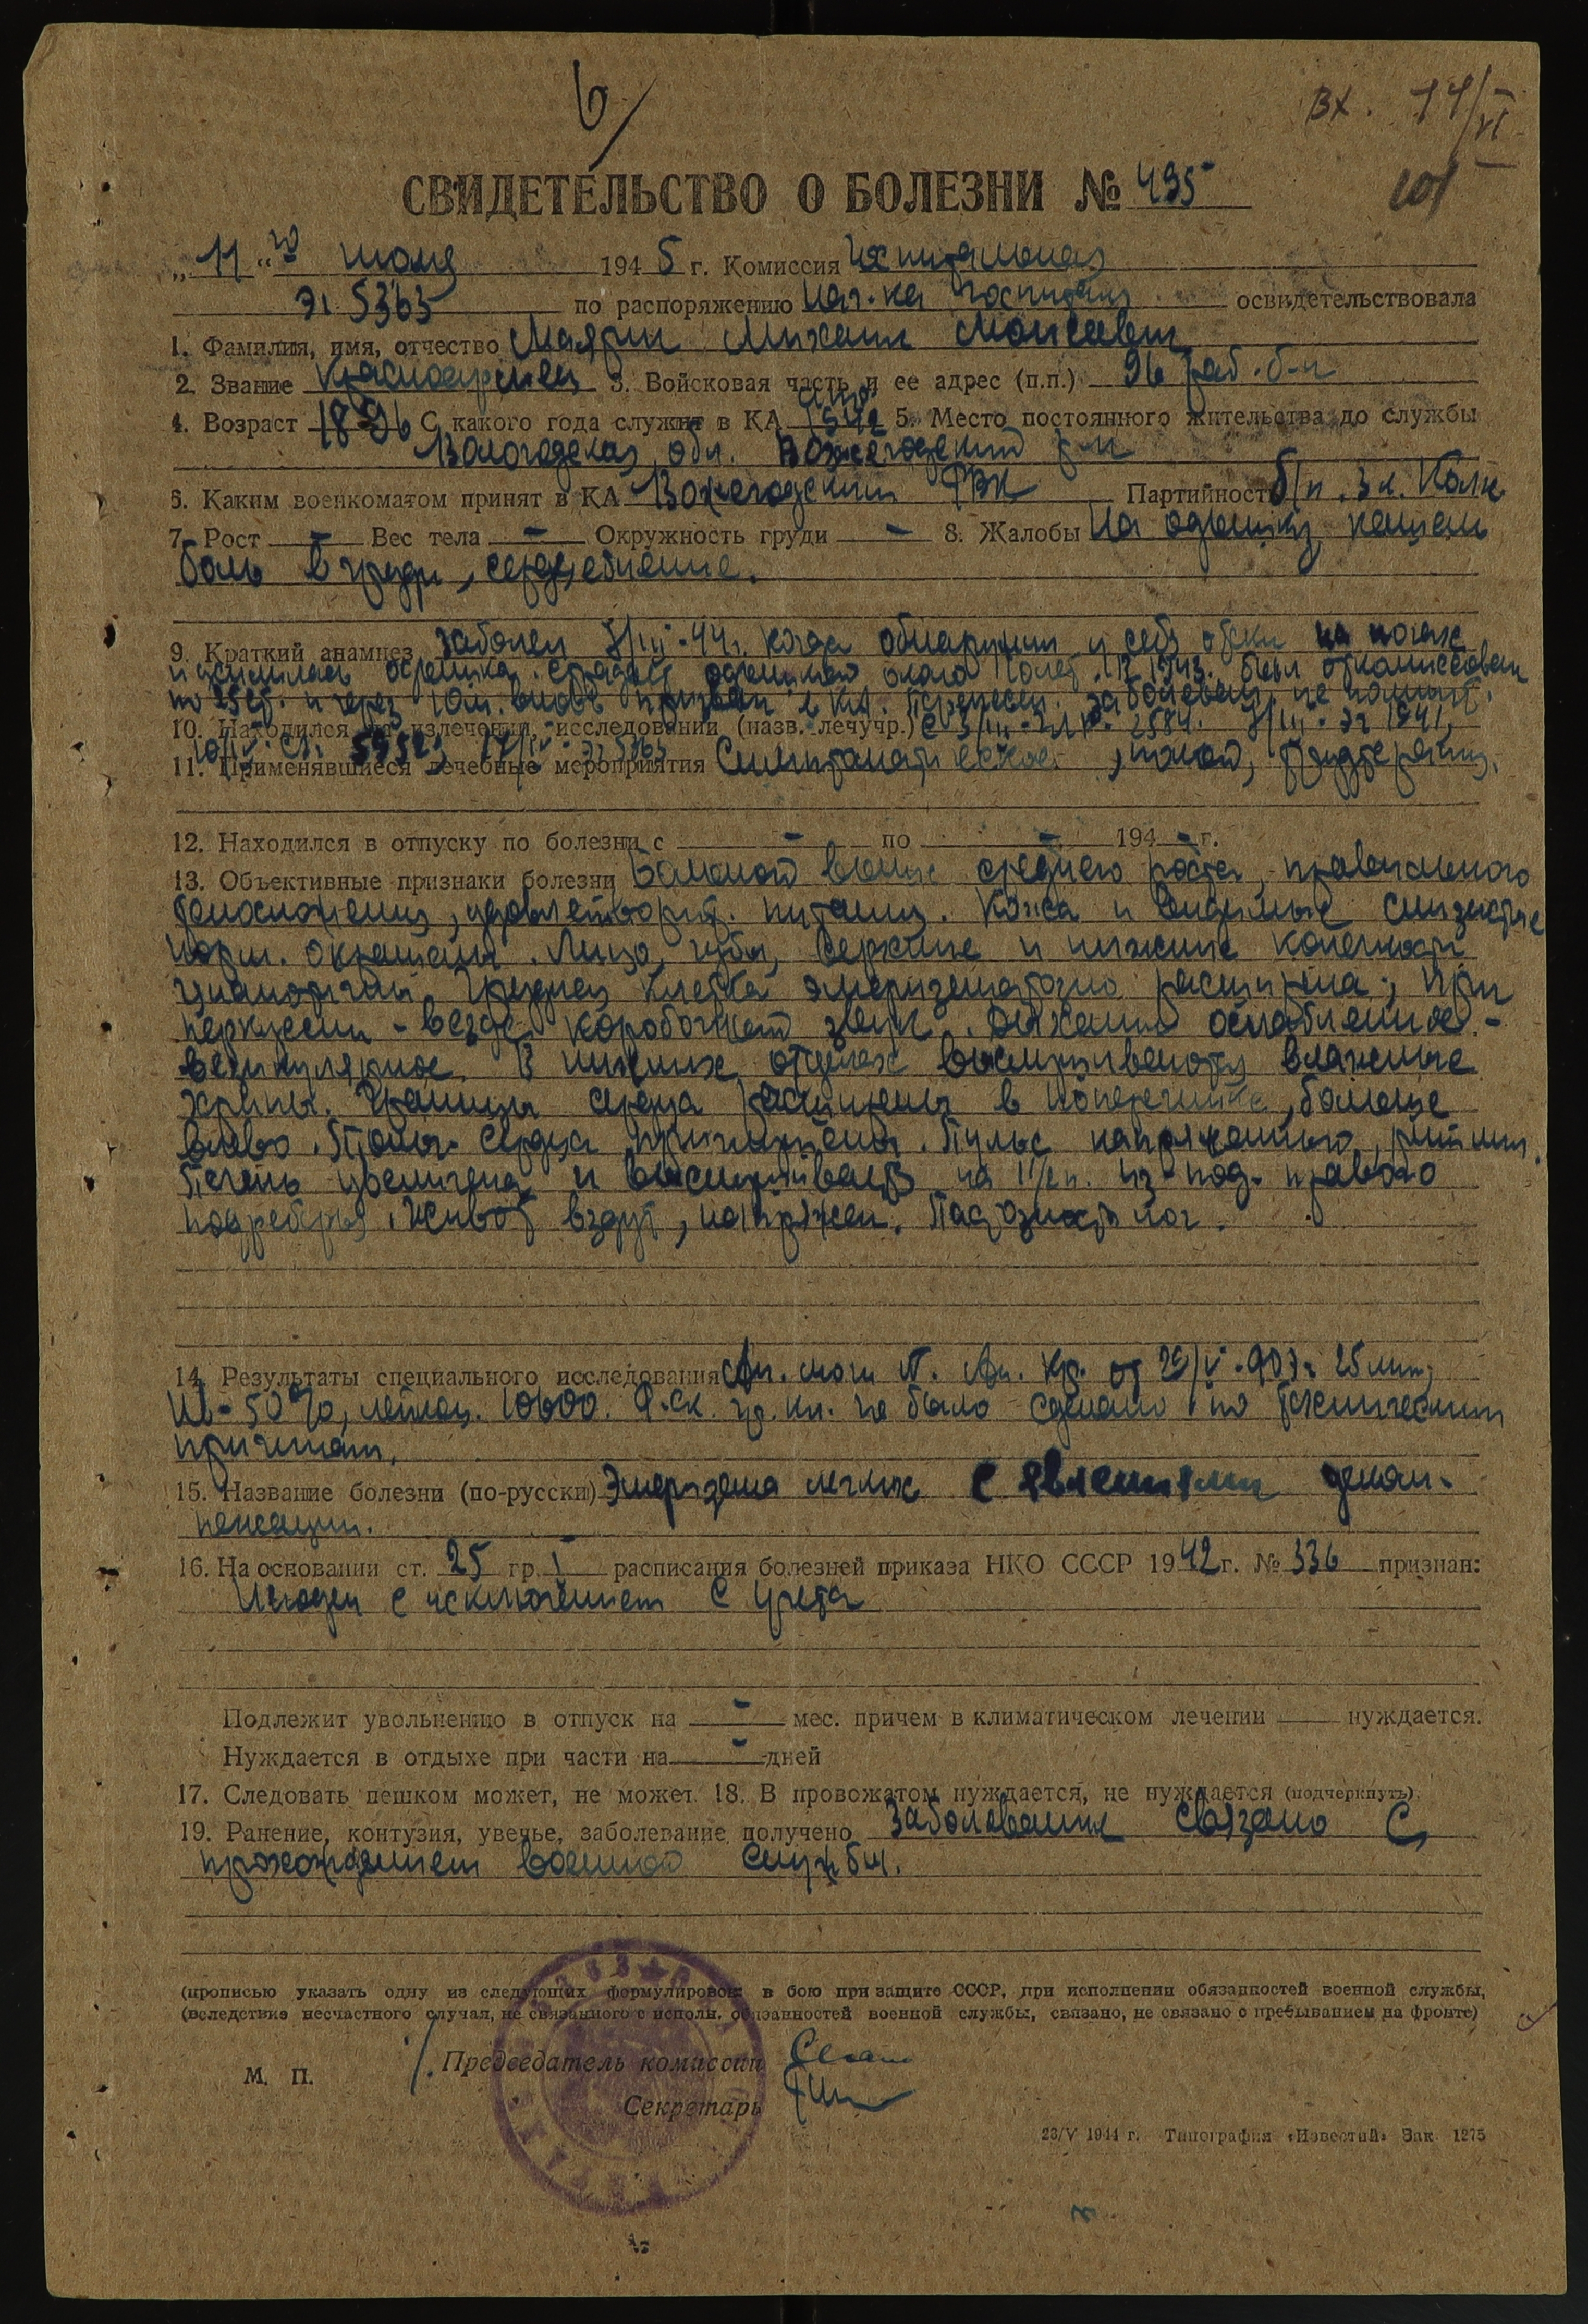 6/
вх. 11/VI
101
СВИДЕТЕЛЬСТВО О БОЛЕЗНИ № 495
„11“го июня 1945 г. Комиссия Госпитальная
ЭГ 5363 по распоряжению нач-ка госпиталя освидетельствовала
1. Фамилия, имя, отчество Михаил Моисеевич
2. Звание Красноармеец 3. Войсковая часть и ее адрес (п.п.) 96 раб. б-н
4. Возраст 1896 С какого года служит в КА 1942 5. Место постоянного жительства до службы
Вологодская обл. Вожегодский р-н
6. Каким военкоматом принят в КА Вожегодским РВК Партийность б/п.
7. Рост - Вес тела - Окружность груди - 8. Жалобы на одышку, кашель
боль в груди, сердцебиение.
9. Краткий анамнез заболел 44г. когда обнаружил у себя отеки на ногах
и усилилась одышка. Страдает одышкой около В 1943. был откомиссован
по 25 и через вновь призван в КА. Перенесен. заболевания не помнит.
10. Находился на излечении, исследовании (назв. лечучр.) 2584. ЭГ 1941,
ЭГ 5363
11. Применявшиеся лечебные мероприятия Симптоматическое, покой,
12. Находился в отпуску по болезни с - по - 194 - г.
13. Объективные признаки болезни Больной выше среднего роста, правильного
телосложения, удовлетворит. питания. Кожа и видимые слизистые
норм. окрашены. Лицо, губы, верхние и нижние конечности
цианотичны. Грудная клетка эмфизематозно расширена; при
перкуссии - везде коробочный звук. Дыхание ослабленное -
везикулярное. В нижних отделах выслушиваются влажные
хрипы. Границы сердца расширены в поперечнике, больше
влево. Тоны сердца приглушены. Пульс напряженный, ритмич.
Печень увеличена и на 1 1/2 п. из-под правого
подреберья. Живот вздут, напряжен. Пастозность ног.
14. Результаты специального исследования Ан. мочи N. Ан. кр. от 29/V 25 мм;
Hb-50%, лейкоц. 10600. гр. кл. не было сделано по техническим
причинам.
15. Название болезни (по-русски) Эмфизема легких с явлениями деком-
пенсации.
16. На основании ст. 25 гр I расписания болезней приказа НКО СССР 1942 г. № 336 признан:
Негоден с исключением с учета
Подлежит увольнению в отпуск на - мес. причем в климатическом лечении нуждается.
Нуждается в отдыхе при части на - дней
17. Следовать пешком может, не может 18. В провожатом нуждается, не нуждается (подчеркнуть).
19. Ранение, контузия, увечье, заболевание получено Заболевание связано с
прохождением военной службы.
(прописью указать одну из следующих формулировок: в бою при защите СССР, при исполнении обязанностей военной службы,
(вследствие несчастного случая, не связанного с исполн. обязанностей военной службы, связано, не связано с пребыванием на фронте)
М. П.
Председатель комиссии
Секретарь
23/V 1944 г. Типография «Известий» Зак. 1275